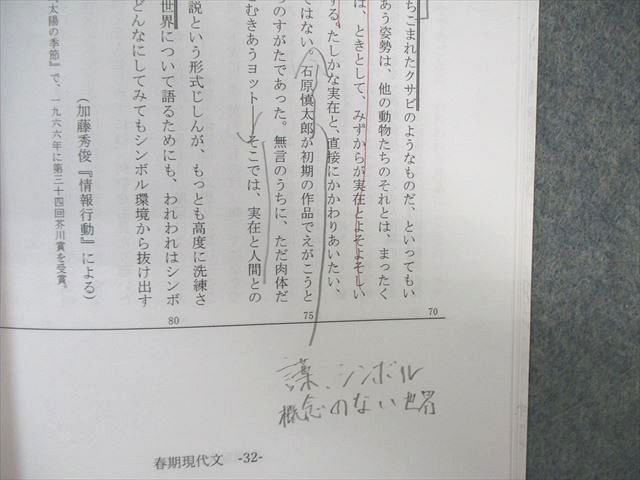 ちごまれたクサビのようなものだ、といってもい
あう姿勢は、他の動物たちのそれとは、まったく
は、ときとして、みずからが実在とよそよそしい
する。たしかな実在と、直接にかかわりあいたい、
ではない。石原慎太郎が初期の作品でえがこうと
つのすがたであった。無言のうちに、ただ肉体だ
むきあうヨット――そこでは、実在と人間との
説という形式じしんが、もっとも高度に洗練さ
世界について語るためにも、われわれはシンボ
どんなにしてみてもシンボル環境から抜け出す
(加藤秀俊『情報行動』による)
太陽の季節』で、一九六六年に第三十四回芥川賞を受賞。
70
75
80
葉、シンボル
概念のない世界
春期現代文 -32-